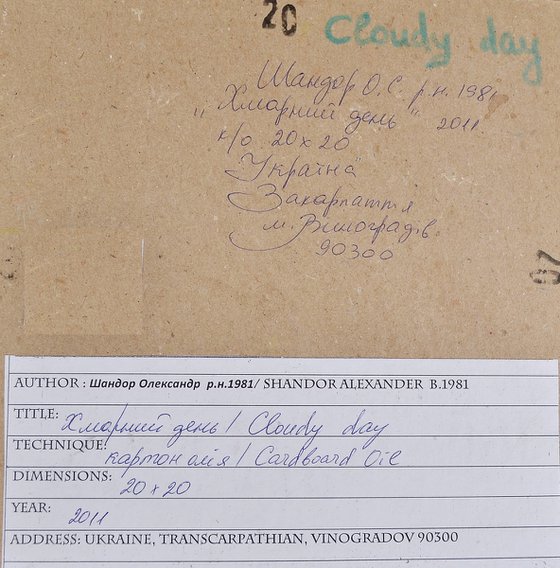 20 Cloudy day
Шандор О.С. р.н. 1981
"Хмарний день" 2011
к/о 20х20
Україна
Закарпаття
м. Виноградів.
90300
07
AUTHOR: Шандор Олександр р.н.1981/ SHANDOR ALEXANDER B.1981
TITLE: Хмарний день / Cloudy day
TECHNIQUE: картон олія / Cardboard Oil
DIMENSIONS: 20 х 20
YEAR: 2011
ADDRESS: UKRAINE, TRANSCARPATHIAN, VINOGRADOV 90300